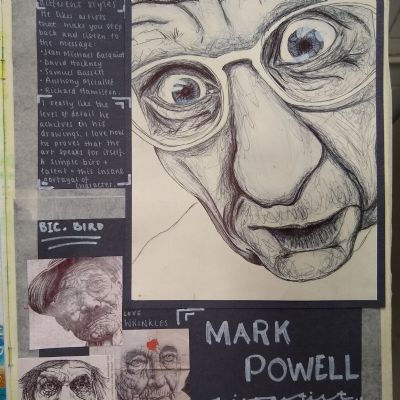 different styles
He likes artists
that make you step
back and listen to
the message:
· Jean Michael Basquiat
· David Hockney
· Samuel Bassett
· Anthony Micallef
· Richard Hamilton.
I really like the
level of detail he
achieves in his
drawings. I love how
he proves that the
art speaks for itself.
A simple biro +
talent = this insane
portayal of
character.
BIC. BIRO
LOVE
WRINKLES
MARK
POWELL